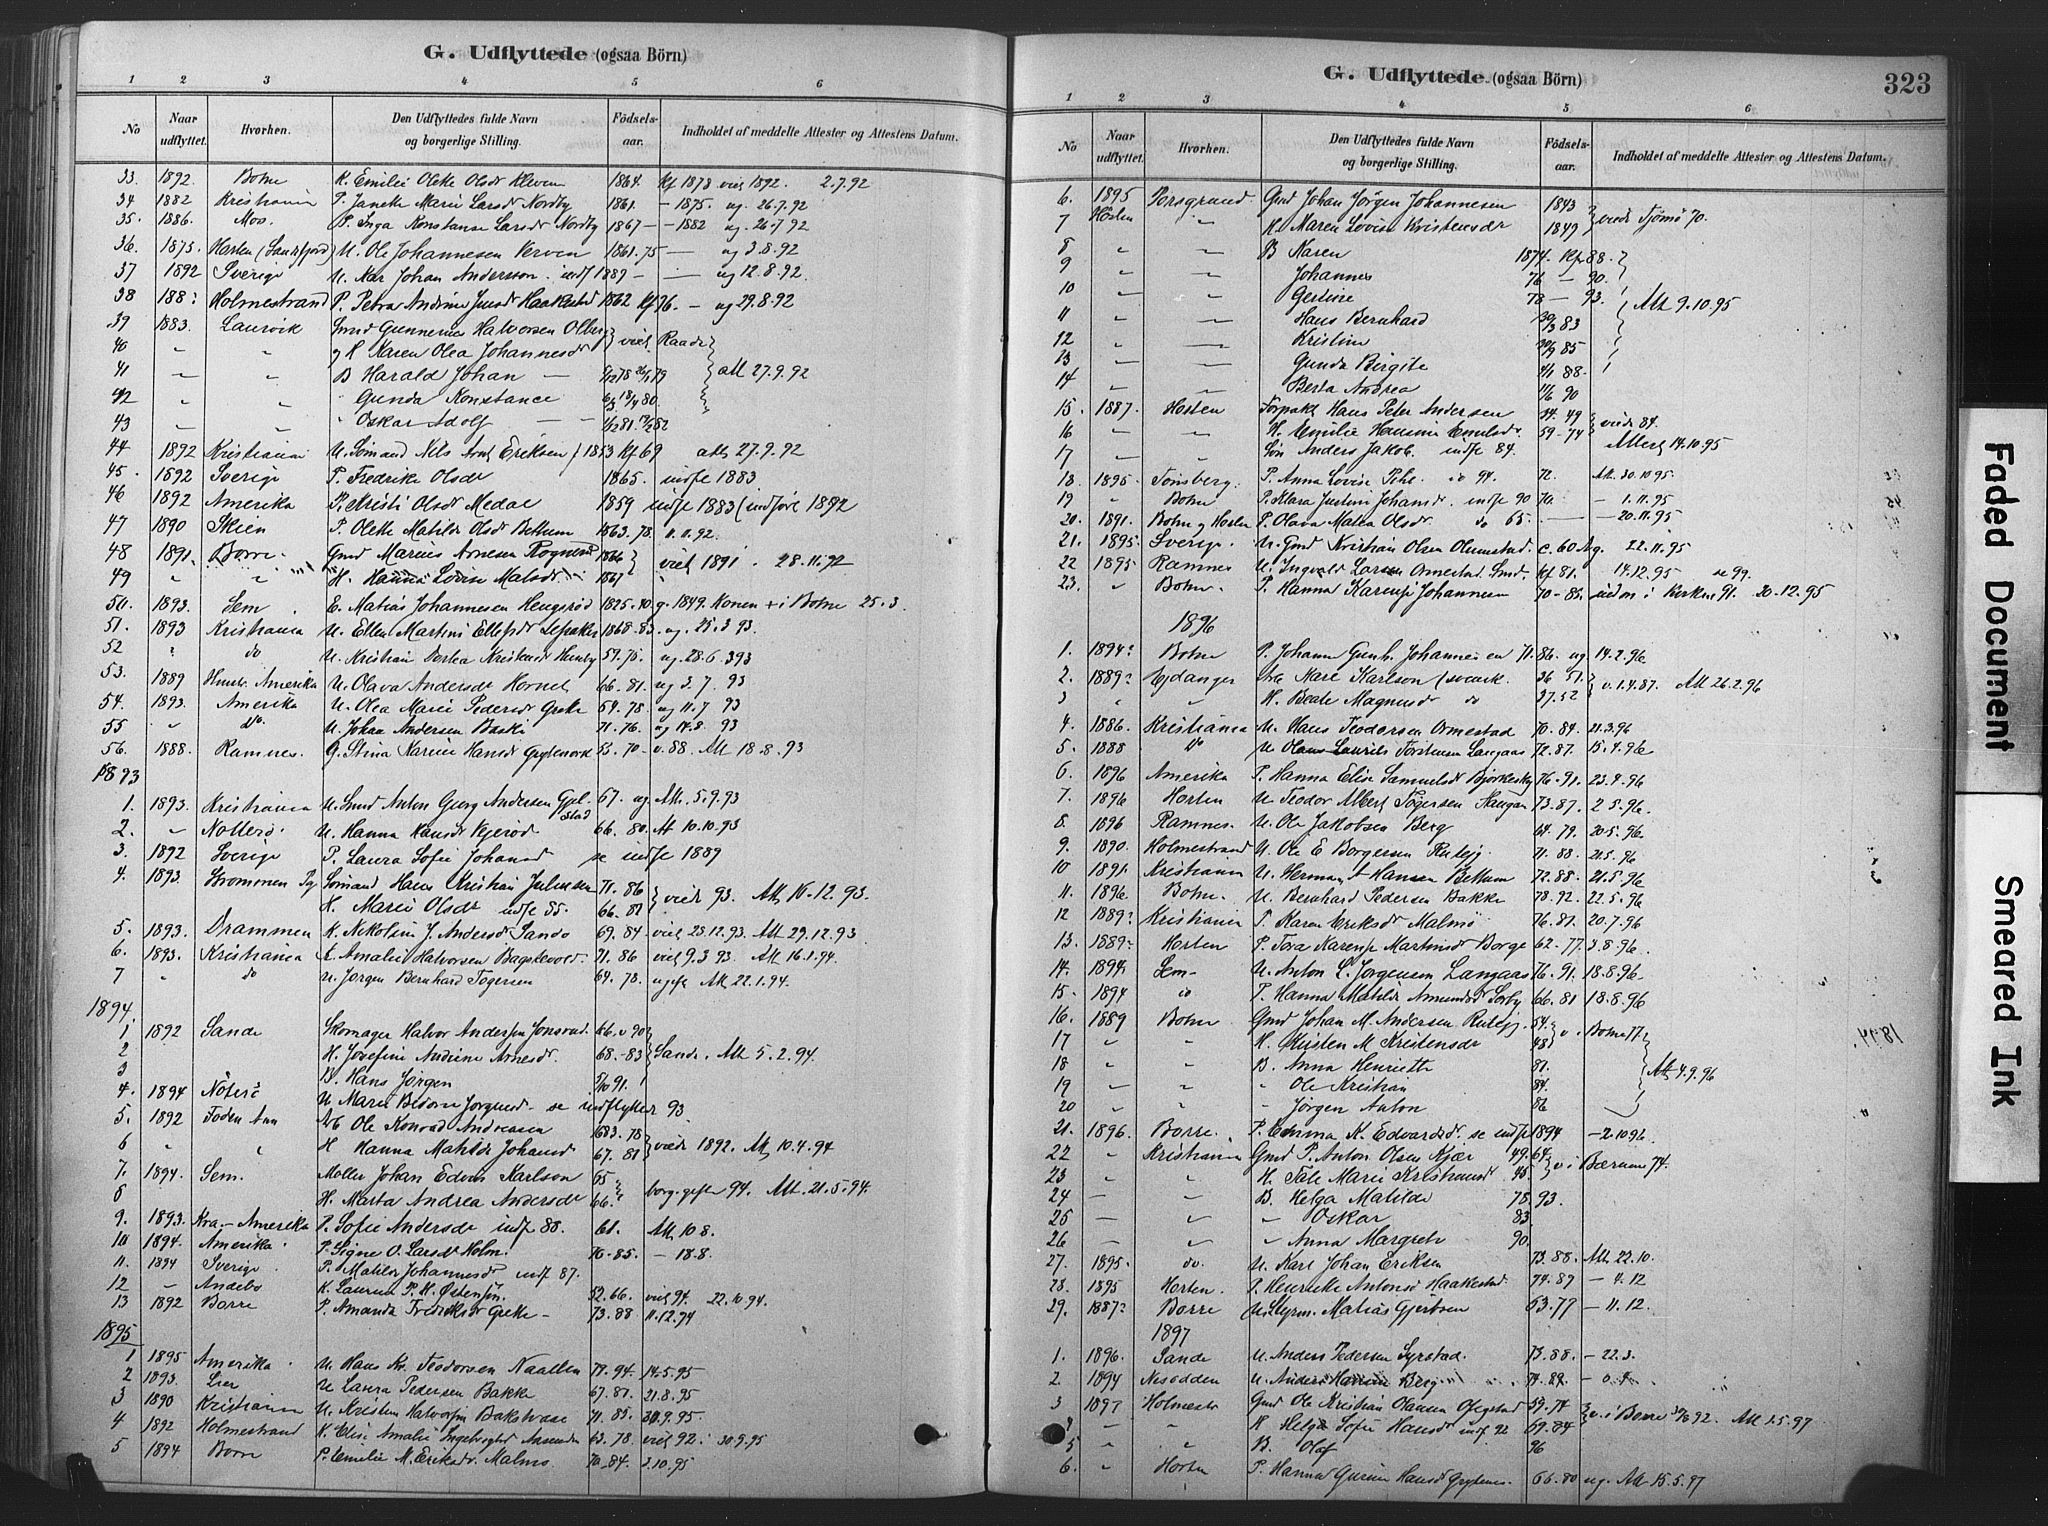 G. Udflyttede (ogsaa Börn)
1 2 3 4 5 6
No Naar udflyttet. Hvorhen. Den Udflyttedes fulde Navn og borgerlige Stilling. Födsels-aar. Indholdet af meddelte Attester og Attestens Datum.
33. 1892 Botne K. Emilie Oleke Olsdr Kleven 1864. Kf 1878 viet 1892. 2.7.92
34 1882 Kristiania P. Janeke Marie Larsdr Nordby 1861. — 1875. ug. 26.7.92
35. 1886. Mos P. Inga Konstanse Larsdr Nordby 1867 — 1882 ug. 26.7.92
36. 1875. (Sandefjord) U. Ole Johannesen Verven 1861.75 — ug 3.8.92
37 1892 Sverige U. Kar Johan Andersson. indf 1889 — ug 12.8.92
38 188? Holmestrand P. Petra Andrine Haakestad 1862 Kf 76. — ug 29.8.92
39 1883. Laurvik Gmd Gunnerius Halvorsen Olberg viet Raade
40 " " og K Karen Olea Johannesdr
41 " " B Harald Johan att 27.9.92
42 " Gunda Konstance
43 " " Oskar Adolf
44 1892 Kristiania U. Sömand Nils Eriksen 1853 Kf 69 att 27.9.92
45. 1892 Sverige P. Fredrike Olsdr 1865. indfl 1883
46 1892 Amerika P. Kristi Olsdr Medae 1859 indfl 1883 (indfört 1892
47 1890 Skien P. Oleke Matilde Olsd Bettum 1863.78. 11.11.92.
48 1891. Borre. Gmd Marius Arnesen Rognerud 1866 viet 1891. 28.11.92
49 " " H. Hanna Lovise Matsdr 1867
50. 1893. Sem E. Matias Johannesen Hengsrød 1825.40. g. 1849. Konen + i Botne 25.3.
51. 1893 Kristiania U. Ellen Martine Ellefsdr 1868.83. ug. 25.3.93.
52 " do U. Kristian Kristensdr 59.75. ug. 28.6.93
53. 1889 Amerika U. Olava Andersdr Hornet 66.81. ug 3.7.93
54. 1893. Amerika U. Olea Marie Pedersdr Greke 64.78. ug 11.7.93
55 " do. U. Johan Andersen Baski 71.76 ug 14.8.93
56. 1888. Ramnes. G. Stina Karine Hansdr 55.70 — v. 88. Att 18.8.93
1893
1. 1893. Kristiania U. Smd Anton Georg Andersen Gjelstad 67. ug. Att. 5.9.93
2. " Notterö. U. Hanna Hansdr Kjerød 66.80. Att 10.10.93
3. 1892 Sverige P. Laura Sofie Johansdr se indfl 1889
4. 1893. Strommen Sömand Hans Kristian Juliussen 71.86 viet 93. Att 16.12.93.
K. Marie Olsdr indfl 85. 66.81
5. 1893. Drammen K. Nikoline J. Andersdr Sando 69.84 viet 28.12.93. Att 29.12.93
6. 1893. Kristiania Amalie Halvorsen Bagskevold. 71.86 viet 9.3.93. Att 16.1.94.
7 " do U. Jørgen Bernhard Togersen 64.78. ugift Att 22.1.94.
1894.
1 1892 Sande Skomager Halvor Andersen Jonsrud. 66. v 90
2 H. Josefine Andrine Arnesdr 68.83 Sande. Att 5.2.94.
3 B. Hans Jörgen 5/10 91.
4. 1894 Nöterö U. Marie Jorgensd. se indflyttet 93
5. 1892 Arb Ole Konrad Andreasen 1863.78 viede 1892. Att 10.4.94
6 " " H Hanna Matilde Johansdr 67.81
7. 1894. Sem. Moller Johan Edvin Karlson 65 borg. gifte 94. Att. 21.5.94.
8 H. Marta Andrea Andersdr 66.
9. 1893. Kra. - Amerika P. Sofie Andersdr indf 88. 61. Att. 10.8.
10 1894. Amerika. P. Signe O. Larsdr Holm. 70.85. — 18.8.
11. 1894 Sverige. P. Matilde Johannesdr indf 87.
12 " Andebo K. Laurine P. K. Østensen. 52.66. viet 94. 22.10.94.
13 1892 Borre P. Amanda Fredriksdr Greke — 73.88 11.12.94
1895
1 1895 Amerika. U. Hans Kr. Teodorsen Naalten 79.94. 14.5.95
2 1893. Lier U. Laura Pedersen Bakke 67.81. 21.8.95
3 1890 Kristiania U. Kristian Halvorsen Bakstvase 71.85. 30.9.95
4 1892 Holmestrand K. Elise Amalie Ingebregtsd 63.78. viet 92. 30.9.95
5 1894 Borre P. Emilie M. Eriksdr. Malmo 70.84. 2.10.95
G. Udflyttede (ogsaa Börn) 323
1 2 3 4 5 6
No Naar udflyttet. Hvorhen. Den Udflyttedes fulde Navn og borgerlige Stilling. Födsels-aar. Indholdet af meddelte Attester og Attestens Datum.
6. 1895 Porsgrund Gmd Johan Jörgen Johannesen 1843 viede Tjömö 70.
7 Hösten " K. Maren Lovise Kristensdr 1849
8 " " B Karen 1874. Kf 88.
9 Johannes 76 — 90.
10 " " Gertine 78 — 93. Att 9.10.95
11 " Hans Bernhard 83
12 " Kristine 85
13 " Gunda Birgite 88.
14 " " Berta Andrea 90
15. 1887. Horten Forpakt Hans Peter Andersen 34.49 viede 84.
16 " " H. Emilie Hansine Emilsdr. 59-74 Attest 14.10.95
17 " " Sön Anders Jakob. indfl 84.
18. 1895. Tönsberg. P. Anna Lovise Pihl. 94. 72. Att. 30.10.95
19 " Botne P. Klara Justine Johansd. indfl 90 — 1.11.95
20. 1891. Botne og Horten P. Olava Matea Olsdr do 65. — 20.11.95
21. 1895. Sverige. U. Gmd Kristian Olsen Olumstad. c. 60 ug. 22.11.95
22 1895 Ramnes U. Ingvald Larsen Ormestad. Smd. Kf 81. 14.12.95 se 99.
23. " Botne. P. Hanna Karense Johannesen 70-86. udon i Kirken 91. 20.12.95
1896
1. 1894? Botne P. Johanne Gunh. Johannesen 71.86. ug 14.2.96
2. 1889? Ejdanger Arb Karl Karlson (svensk. 36 51. v. 1.4.87. Att 26.2.96
3 " " H. Beate Magnusdr do 37.52
4. 1886. Kristiania U. Hans Teodorsen Ormestad 70.84. 21.3.96
5. 1888 do U Laurits Torstensen Langaas 72.87. 15.4.96
6. 1896 Amerika P. Hanna Elise Samuelsdr Bjerkesby 76.91. 23.4.96
7. 1896 Horten U. Teodor Albert Tögersen Haugan 73.87. 2.5.96.
8. 1896 Ramnes. U. Ole Jakobsen Berg 64.79. 20.5.96.
9. 1890. Holmestrand U. Ole E Borgersen Rutejj. 71.88. 21.5.96
10 1891. Kristiania U. Herman A Hansen Bettum 72.88. 21.5.96
11. 1896 Botne. U. Bernhard Pedersen Bakke 78.92. 22.5.96
12 1889? Kristiania P. Karen Eriksdr Malmö 76.81. 20.7.96
13. 1889? Horten P. Tora Karense Martinsdr Borge 62-77. 3.8.96.
14. 1894. Sem U. Anton L. Jorgensen Langaas 76.91. 18.8.96.
15. 1894 do P. Hanna Matilde Amundsdr Sorby 66.81 18.8.96
16. 1889 Botne Gmd Johan M. Andersen Rutejj. 54. v. Botne 77.
17 " " K. Kristen M Kristensdr 48
18 " " B. Anna Henriette 81. Att 4.9.96
19 " " " Ole Kristian 84.
20 " " " Jörgen Anton 86
21. 1896. Borre. P. Emma K. Edvardsd. se indfl 1894 — 2.10.96.
22 " Kristiania Gmd P. Anton Olsen Kjær 49.64. v. i Bærum 74.
23 " H. Tale Marie Kristmund 45.
24 — " B. Helga Matilde 78.93.
25 — " " Oskar 83.
26 — " " Anna Margrete 90.
27. 1895. do. U. Karl Johan Eriksen 73.88. Att 22.10.
28. 1895 Horten P. Henrike Antonsd Haakestad 74.87 — 4.12
29. 1887? Borre U. Styrm. Matias Gjertsen 63.77 — 11.12.
1897
1. 1896. Sande U. Anders Pedersen Syrstad. 73.88. — 22.3.
2 1894 Nesodden U. Anders Berg 74.89.
3 1897 Holmestr Gmd Ole Kristian Olausen Ofegstad 59.74 v. i Borre 92. Att 1.5.97
4 " " K Helga Sofie Hansdr indf 92 69.84
5 " " B. Olaf 96
6. " Horten P. Hanna Gurine Hansdr 66.80 ug. Att 15.5.97
Faded Document
Smeared Ink